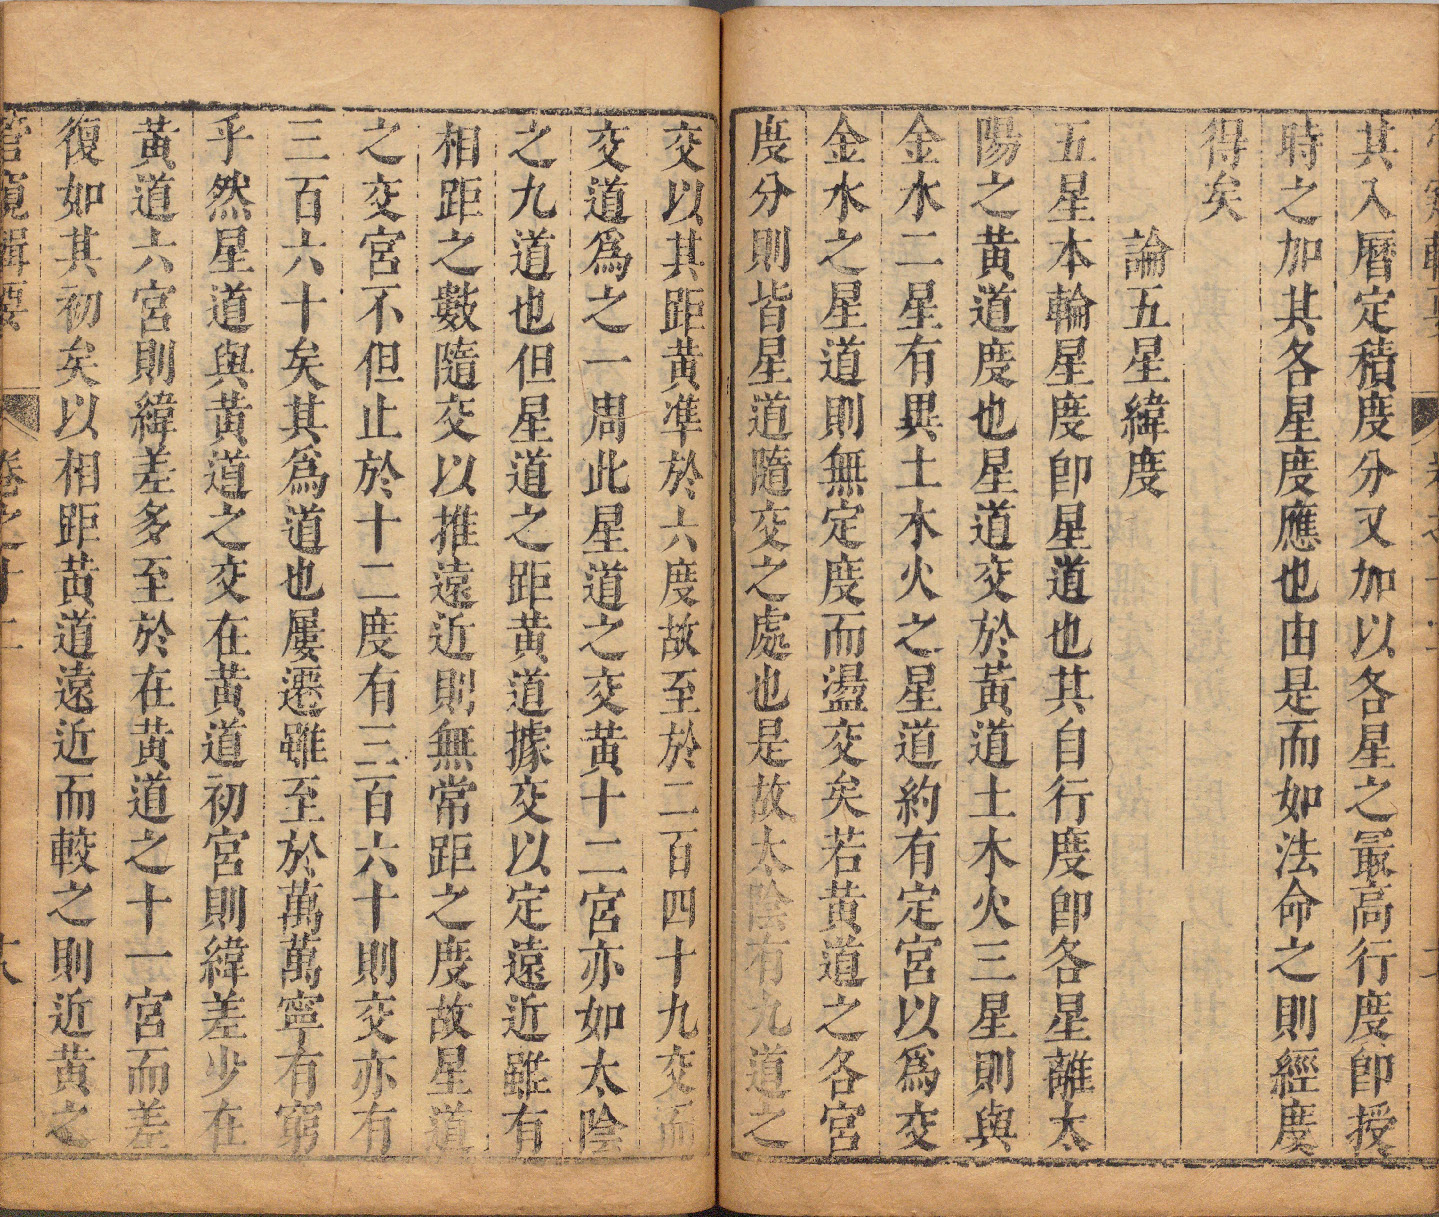 其入曆定積度分又加以各星之最高行度卽授
時之加其各星度應也由是而如法命之則經度
得矣
論五星緯度
五星本輪星度卽星道也其自行度卽各星離太
陽之黃道度也星道交於黃道土木火三星則與
金水二星有異土木火之星道約有定宮以爲交
金水之星道則無定度而盪交矣若黃道之各宮
度分則皆星道隨交之處也是故太陰有九道之
交以其距黃準於六度故至於二百四十九交而
交道爲之一周此星道之交黃十二宮亦如太陰
之九道也但星道之距黃道據交以定遠近雖有
相距之數隨交以推遠近則無常距之度故星道
之交宮不但止於十二度有三百六十則交亦有
三百六十矣其爲道也屢遷雖至於萬萬寧有窮
乎然星道與黃道之交在黃道初宮則緯差少在
黃道六宮則緯差多至於在黃道之十一宮而差
復如其初矣以相距黃道遠近而較之則近黃之
管窺輯要
卷之十二
十八